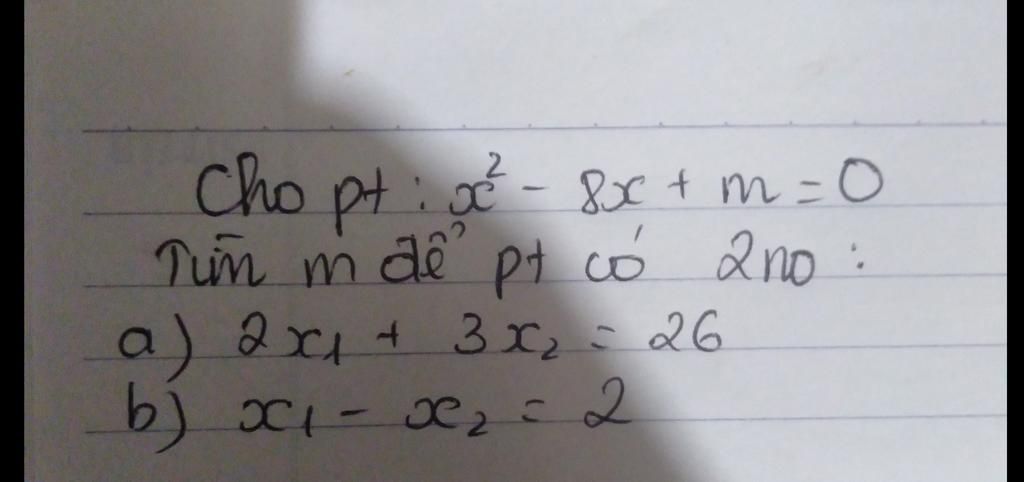 Cho pt : x² - 8x + m = 0
Tìm m để pt có 2 no :
a) 2x₁ + 3x₂ = 26
b) x₁ - x₂ = 2